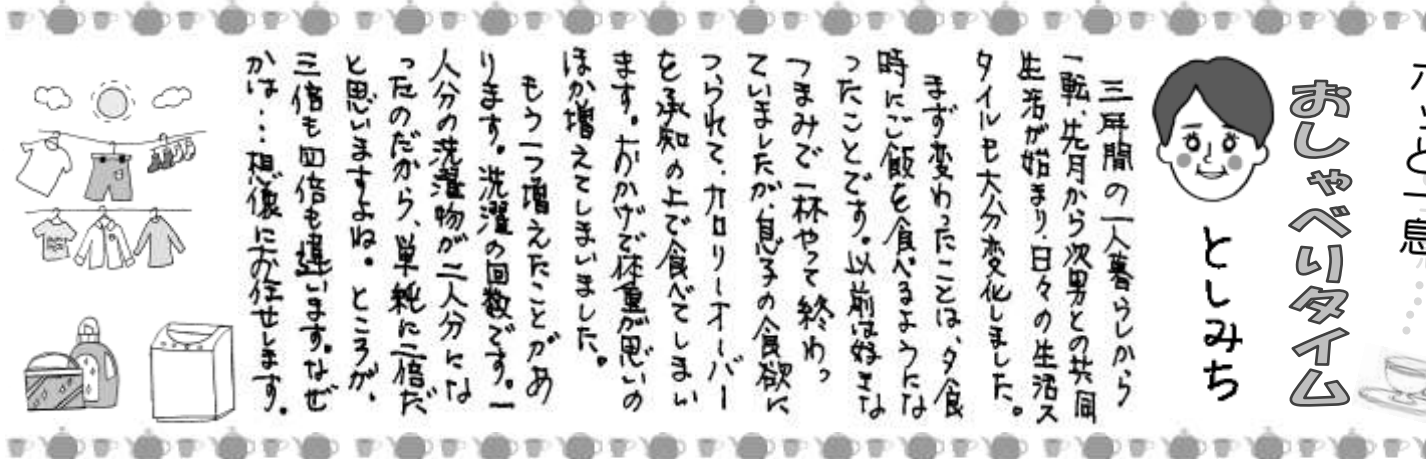 ホッと一息
おしゃべりタイム
としみち
三年間の一人暮らしから
一転、先月から次男との共同
生活が始まり、日々の生活ス
タイルも大分変化しました。
まず変わったことは、夕食
時にご飯を食べるようにな
ったことです。以前は好きな
つまみで一杯やって終わっ
ていましたが、息子の食欲に
つられて、カロリーオーバー
を承知の上で食べてしまい
ます。おかげで体重が思いの
ほか増えてしまいました。
もう一つ増えたことがあ
ります。洗濯の回数です。一
人分の洗濯物が二人分にな
ったのだから、単純に二倍だ
と思いますよね。ところが、
三倍も四倍も違います。なぜ
かは…想像にお任せします。